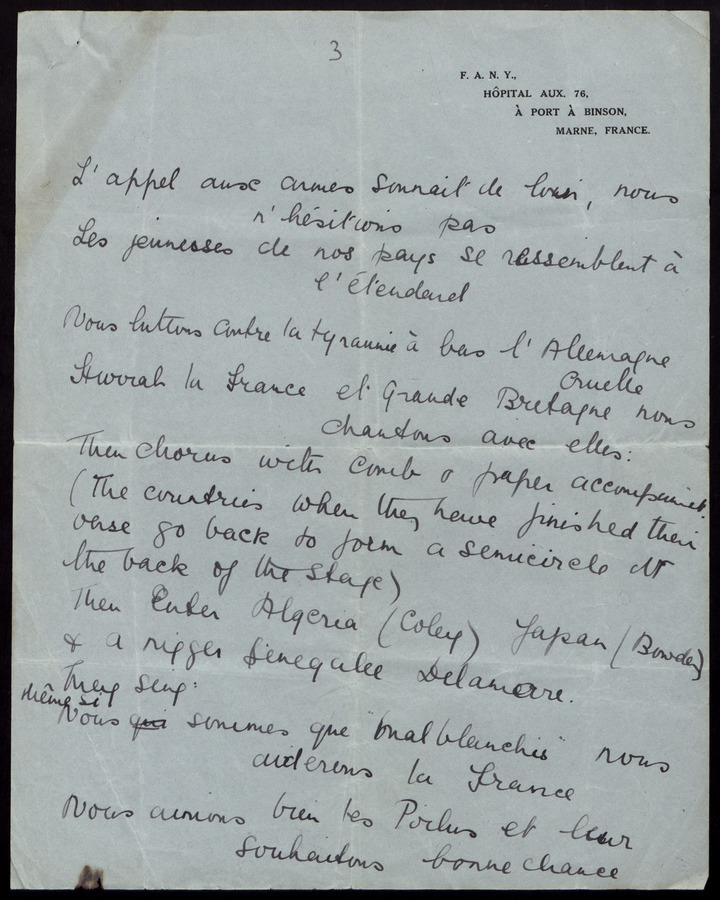 3
F. A. N. Y.,
HÔPITAL AUX. 76,
À PORT À BINSON,
MARNE, FRANCE.
L'appel aux armes sonnait de loin, nous
n'hésitions pas
Les jeunesses de nos pays se rassemblent à
l'étendard
Nous luttons contre la tyrannie à bas l'Allemagne
Cruelle
Hurrah la France et Grande Bretagne nous
chantons avec elles:
Then chorus with comb & paper accompanimt.
(The countries when they have finished their
verse go back to form a semicircle at
the back of the stage)
Then Enter Algeria (Coley) Japan (Bowden)
& a nigger Senegalee Delamere.
They sing:
même si
Nous qui sommes que "mal blanchis" nous
aiderons la France
Nous aimons bien les Poilus et leur
souhaitons bonne chance